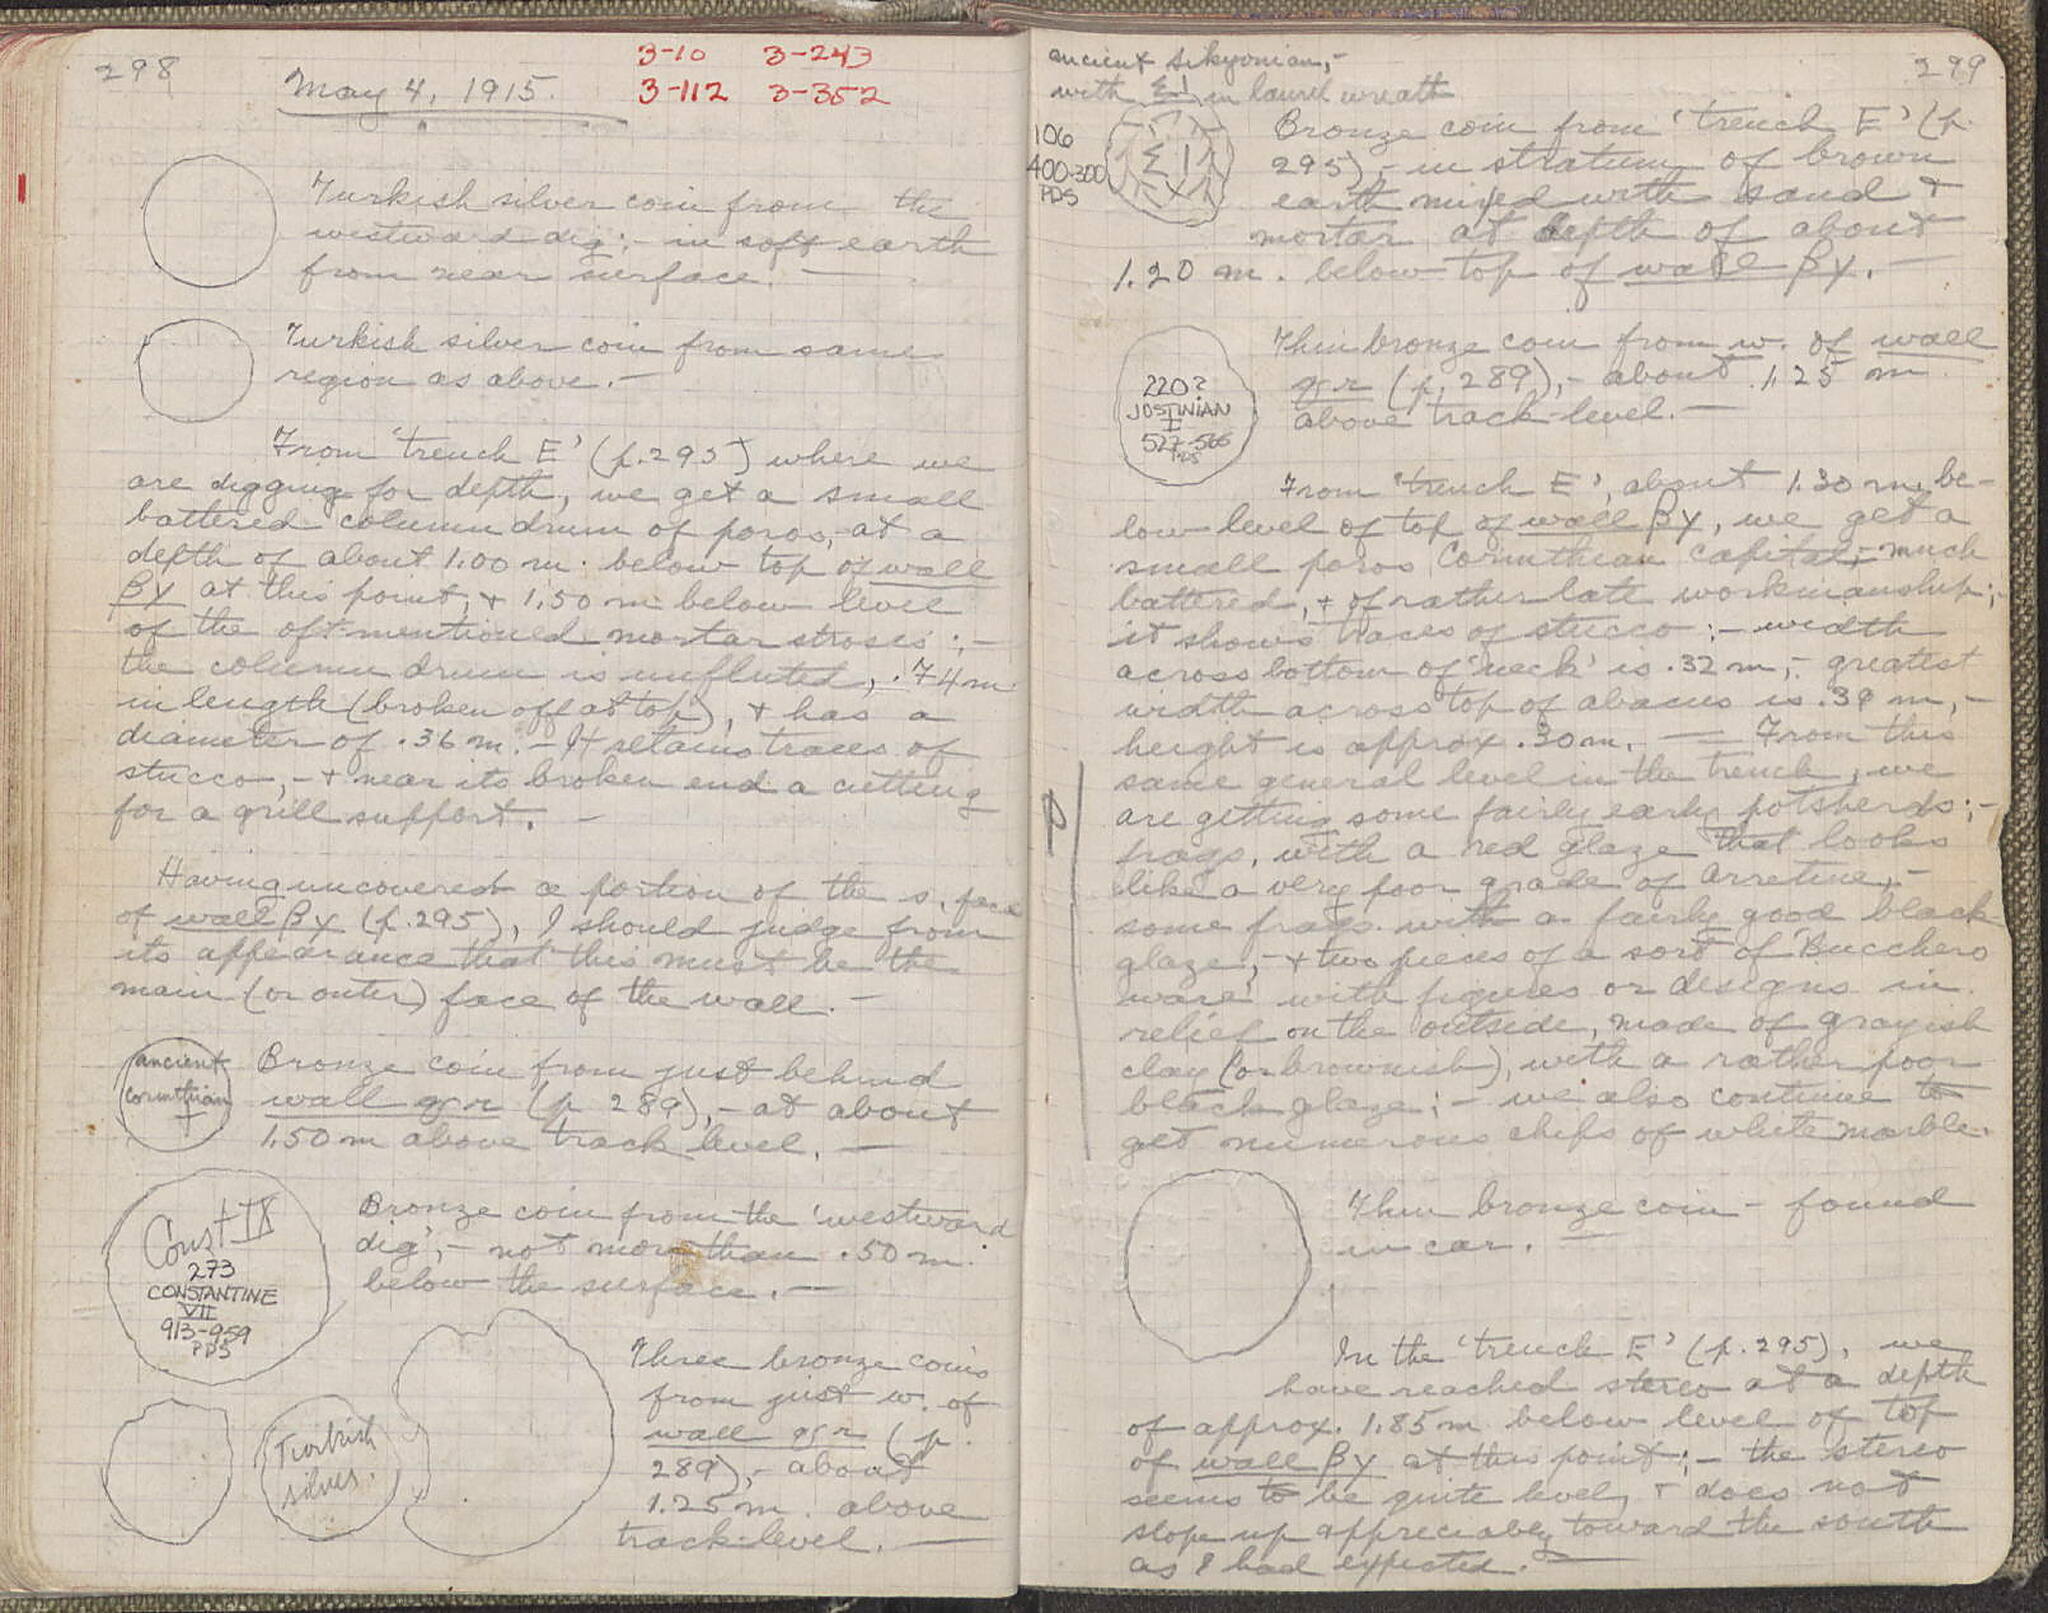 298
May 4, 1915.
3-10 3-243
3-112 3-352
Turkish silver coin from the
westward dig; - in soft earth
from near surface. —
Turkish silver coin from same
region as above. —
From 'trench E' (p. 295) where we
are digging for depth, we get a small
battered column drum of poros, at a
depth of about 1.00 m. below top of wall
βγ at this point, + 1.50 m below level
of the oft-mentioned mortar strosis; -
the column drum is unfluted, .74 m
in length (broken off at top), + has a
diameter of .36 m. - It retains traces of
stucco, - + near its broken end a cutting
for a grill support. —
Having uncovered a portion of the s. face
of wall βγ (p. 295), I should judge from
its appearance that this must be the
main (or outer) face of the wall. —
ancient
Corinthian
Bronze coin from just behind
wall (p 289), - at about
1.50 m above track level. —
Const IX
273
CONSTANTINE
VII
913-959
PDS
Bronze coin from the 'westward
dig', - not more than .50 m.
below the surface. —
Turkish
silver.
Three bronze coins
from just w. of
wall (p.
289), - about
1.25 m. above
track-level. —
299
ancient Sikyonian, -
with ΣΙ in laurel wreath
106
400-300
PDS
ΣΙ
Bronze coin from 'trench E' (p.
295), - in stratum of brown
earth mixed with sand +
mortar at depth of about
1.20 m. below top of wall βγ. —
220?
JUSTINIAN
I
527-566
PDS
Thin bronze coin from w. of wall
(p. 289), - about 1.25 m
above track-level. —
From 'trench E', about 1.30 m. be-
low level of top of wall βγ, we get a
small poros Corinthian capital, - much
battered, + of rather late workmanship; -
it shows traces of stucco; - width
across bottom of 'neck' is .32 m, - greatest
width across top of abacus is .39 m, -
height is approx. .30 m. — From this
same general level in the trench, we
are getting some fairly early potsherds; -
frags. with a red glaze that looks
like a very poor grade of Arretine, -
some frags. with a fairly good black
glaze, - + two pieces of a sort of 'Bucchero
ware' with figures or designs in
relief on the outside, made of grayish
clay (or brownish), with a rather poor
black glaze; - we also continue to
get numerous chips of white marble.
P
Thin bronze coin - found
in car. —
In the 'trench E' (p. 295), we
have reached stereo at a depth
of approx. 1.85 m below level of top
of wall βγ at this point; - the stereo
seems to be quite level, + does not
slope up appreciably toward the south
as I had expected. —